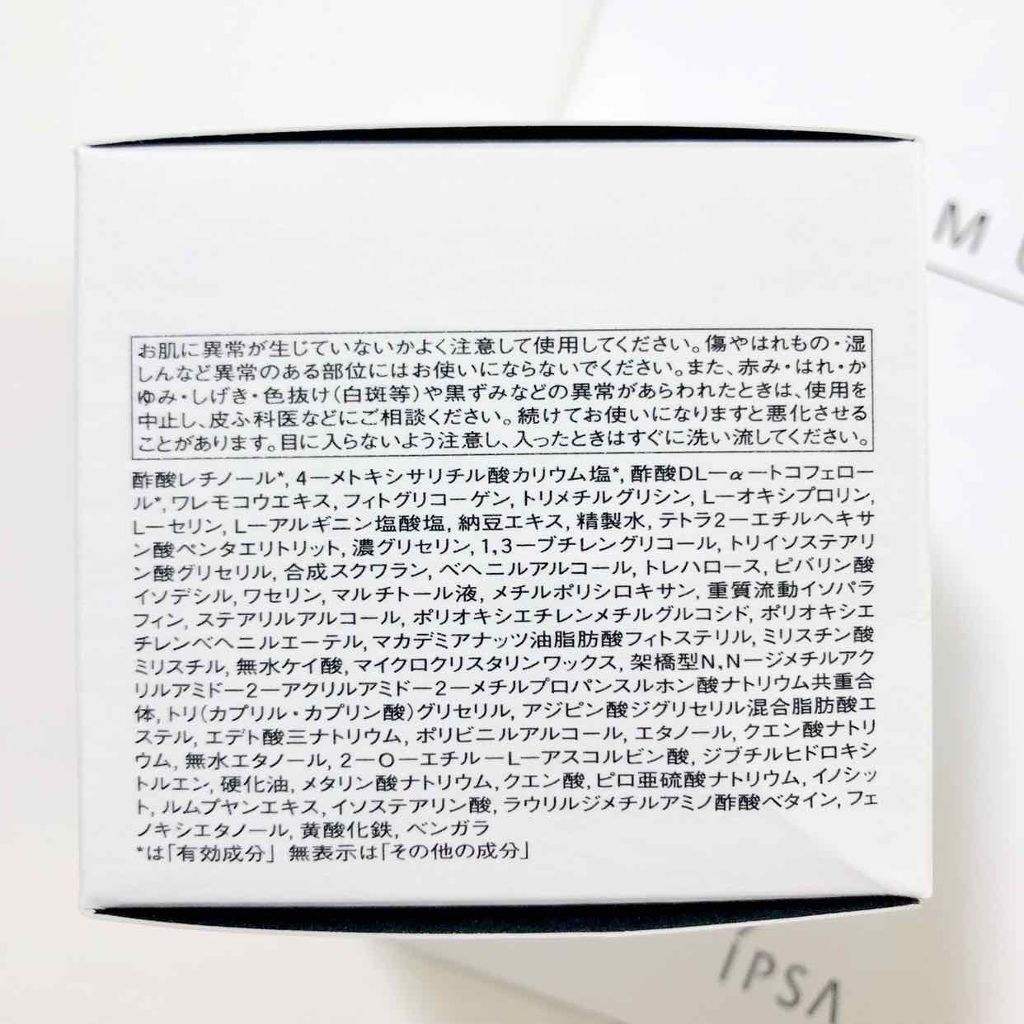 お肌に異常が生じていないかよく注意して使用してください。傷やはれもの・湿
しんなど異常のある部位にはお使いにならないでください。また、赤み・はれ・か
ゆみ・しげき・色抜け(白斑等)や黒ずみなどの異常があらわれたときは、使用を
中止し、皮ふ科医などにご相談ください。続けてお使いになりますと悪化させる
ことがあります。目に入らないよう注意し、入ったときはすぐに洗い流してください。
酢酸レチノール*, 4ーメトキシサリチル酸カリウム塩*, 酢酸DLーαートコフェロー
ル*, ワレモコウエキス, フィトグリコーゲン, トリメチルグリシン, Lーオキシプロリン,
Lーセリン, Lーアルギニン塩酸塩, 納豆エキス, 精製水, テトラ2ーエチルヘキサ
ン酸ペンタエリトリット, 濃グリセリン, 1,3ーブチレングリコール, トリイソステアリ
ン酸グリセリル, 合成スクワラン, ベヘニルアルコール, トレハロース, ピバリン酸
イソデシル, ワセリン, マルチトール液, メチルポリシロキサン, 重質流動イソパラ
フィン, ステアリルアルコール, ポリオキシエチレンメチルグルコシド, ポリオキシエ
チレンベヘニルエーテル, マカデミアナッツ油脂肪酸フィトステリル, ミリスチン酸
ミリスチル, 無水ケイ酸, マイクロクリスタリンワックス, 架橋型N,Nージメチルアク
リルアミドー2ーアクリルアミドー2ーメチルプロパンスルホン酸ナトリウム共重合
体, トリ(カプリル・カプリン酸)グリセリル, アジピン酸ジグリセリル混合脂肪酸エ
ステル, エデト酸三ナトリウム, ポリビニルアルコール, エタノール, クエン酸ナトリ
ウム, 無水エタノール, 2ーOーエチルーLーアスコルビン酸, ジブチルヒドロキシ
トルエン, 硬化油, メタリン酸ナトリウム, クエン酸, ピロ亜硫酸ナトリウム, イノシッ
ト, ルムプヤンエキス, イソステアリン酸, ラウリルジメチルアミノ酢酸ベタイン, フェ
ノキシエタノール, 黄酸化鉄, ベンガラ
*は「有効成分」 無表示は「その他の成分」
M
IPSA